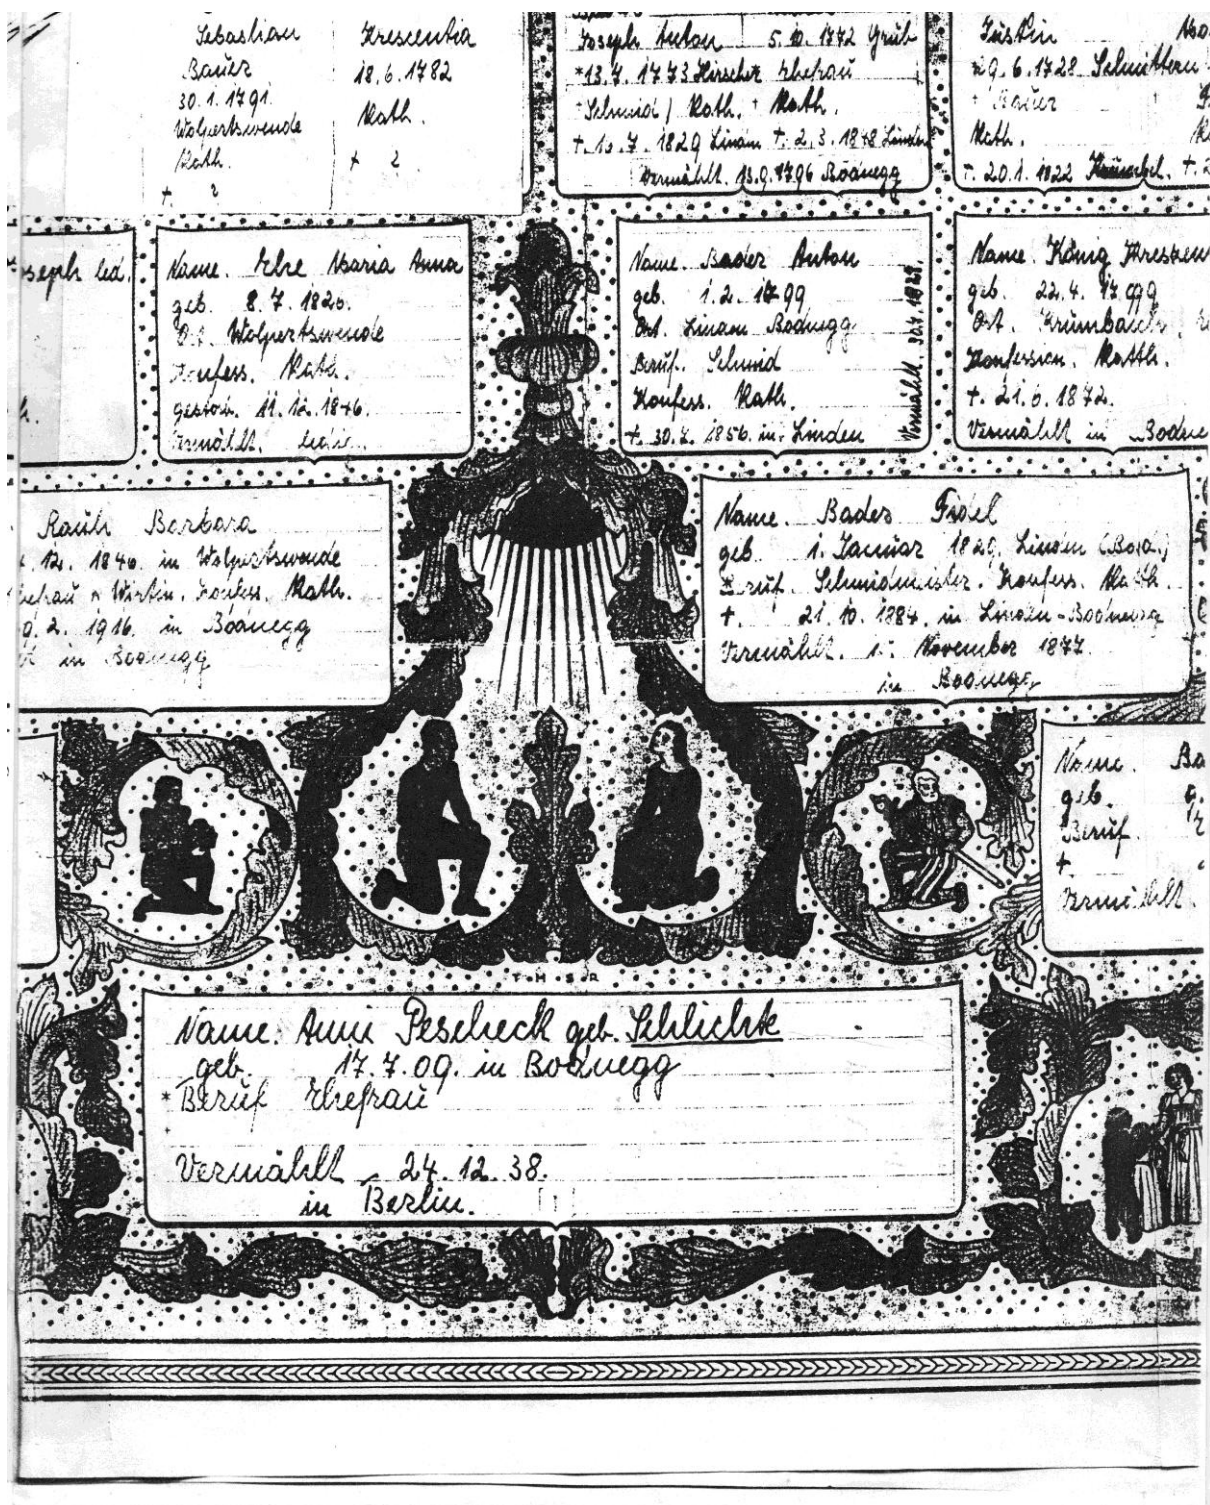 Sebastian
Bauer
30.1.1791.
Wolpertswende
Kath.
+ ?
Krescentia
18.6.1782
Kath.
+ ?
Joseph Anton
*13.7.1773
Schmid / Kath.
+. 10.7.1829 Linden
5.10.1772 Grub
Ehefrau
Kath.
+. 2.3.1848 Linden
Vermählt. 13.9.1796 Bodnegg
Justin
29.6.1728
Bauer
Kath.
+. 20.1.1822
oseph led.
Name. Ehe Maria Anna
geb. 8.7.1820.
Ort. Wolpertswende
Konfess. Kath.
gestorb. 11.12.1846.
Vermählt.
Name. Bader Anton
geb. 1.2.1799
Ort. Linden Bodnegg
Beruf. Schmid
Konfess. Kath.
+. 30.7.1856. in Linden
Vermählt. 30.4.1829.
Name. König Kreszen
geb. 22.4.1799
Ort. Krumbach
Konfession. Kath.
+. 21.6.1872.
Vermählt in Bodne
Rauh Barbara
.12.1846 in Wolpertswende
hefrau u Wirtin. Konfess. Kath.
9.2.1916. in Bodnegg
in Bodnegg
Name. Bader Fidel
geb. 1. Januar 1829. Linden (Bod.)
Beruf. Schmidmeister. Konfess. Kath.
+. 21.10.1884. in Linden-Bodnegg
Vermählt. 1. November 1877.
in Bodnegg
Name. Ba
geb. 9.
Beruf.
+
Vermählt.
T·H·S·R
Name. Anni Pescheck geb. Schlichte
geb. 17.7.09. in Bodnegg
* Beruf Ehefrau
Vermählt 24.12.38.
in Berlin.